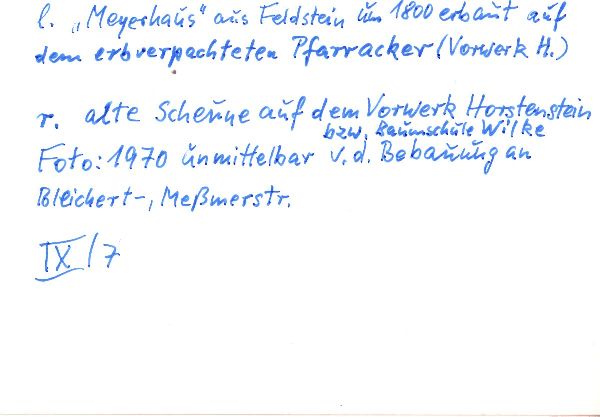 l. „Meyerhaus" aus Feldstein um 1800 erbaut auf
dem erbverpachteten Pfarracker (Vorwerk H.)
r. alte Scheune auf dem Vorwerk Horstenstein
bzw. Baumschule Wilke
Foto: 1970 unmittelbar v. d. Bebauung an
Bleichert-, Meßmerstr.
IX/7